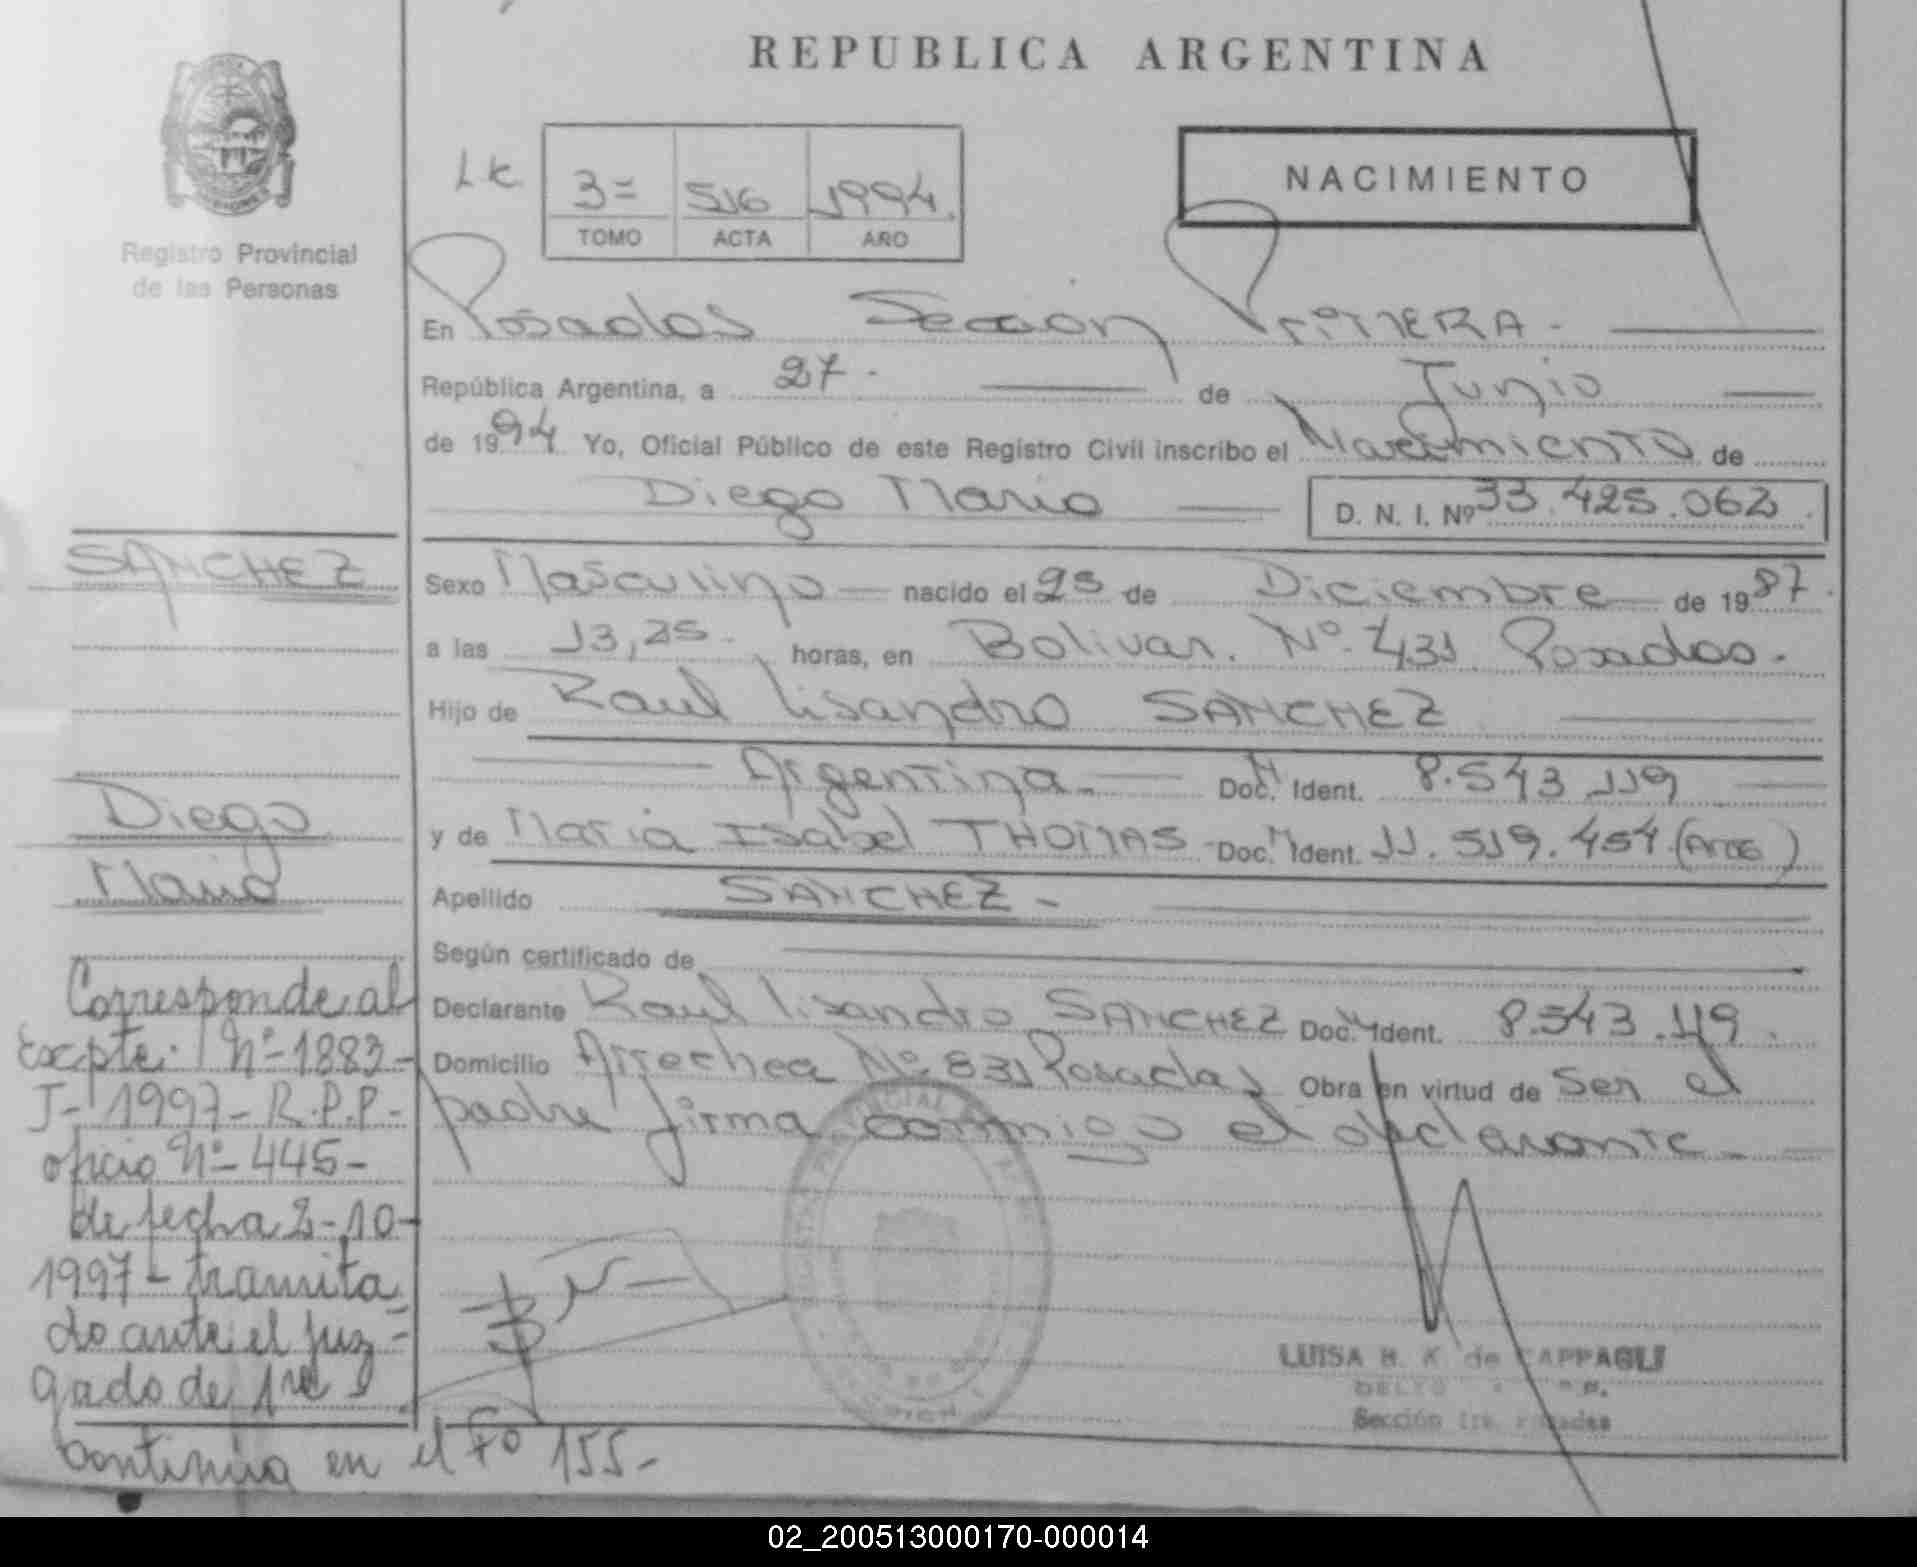 REPUBLICA ARGENTINA
Registro Provincial
de las Personas
3= 516 1994.
TOMO ACTA AÑO
NACIMIENTO
En Posadas Sección PriMERA -
República Argentina, a 27. de Junio
de 1994 Yo, Oficial Público de este Registro Civil inscribo el Nacimiento de
Diego Mario D. N. I. Nº 33.425.062
SANCHEZ
Diego
Mario
Sexo Masculino nacido el 25 de Diciembre de 1987
a las 13,25. horas, en Bolivar. Nº 431 Posadas.
Hijo de Raul Lisandro SANCHEZ
Argentina - Doc. Ident. 8.543.119
y de Maria Isabel THOMAS - Doc. Ident. 11.519.454 (Arg)
Apellido SANCHEZ -
Según certificado de
Declarante Raul Lisandro SANCHEZ Doc. Ident. 8.543.119.
Domicilio Arrechea Nº 831 Posadas Obra en virtud de Ser el
padre firma conmigo el declarante -
Corresponde al
Expte. Nº-1883-
J-1997-R.P.P.-
oficio Nº-445-
de fecha 2-10-
1997- tramita
do ante el juz-
gado de 1ra
Continúa en el Fº 155-
LUISA H. K. de CAPPAGLI
Sección 1ra. Posadas
02_200513000170-000014